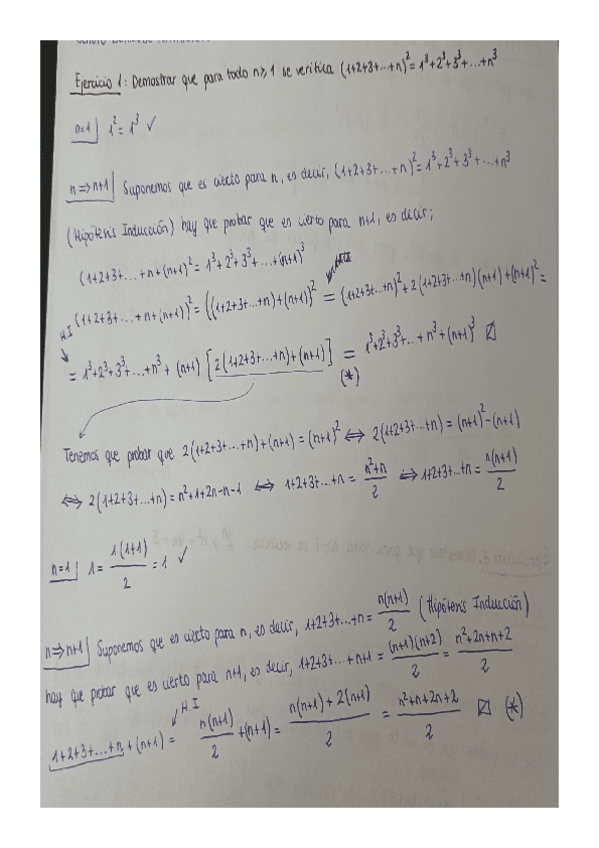 Ejercicio 1: Demostrar que para todo n≥1 se verifica (1+2+3+...+n)²=1³+2³+3³+...+n³
n=1 1²=1³ ✓
n⇒n+1 Suponemos que es cierto para n, es decir, (1+2+3+...+n)²=1³+2³+3³+...+n³
(Hipótesis Inducción) hay que probar que es cierto para n+1, es decir;
(1+2+3+...+n+(n+1)²=1³+2³+3³+...+(n+1)³
(1+2+3+...+n+(n+1))²=((1+2+3+...+n)+(n+1))² = (1+2+3+...+n)²+2(1+2+3+...+n)(n+1)+(n+1)²=
H.I
= 1³+2³+3³+...+n³+(n+1)[2(1+2+3+...+n)+(n+1)] = 1³+2³+3³+...+n³+(n+1)³ ☑
(*)
Tenemos que probar que 2(1+2+3+...+n)+(n+1)=(n+1)² ⇔ 2(1+2+3+...+n)=(n+1)²-(n+1)
⇔ 2(1+2+3+...+n)=n²+1+2n-n-1 ⇔ 1+2+3+...+n = (n²+n)/2 ⇔ 1+2+3+...+n = n(n+1)/2
n=1 1= 1(1+1)/2 =1 ✓
n⇒n+1 Suponemos que es cierto para n, es decir, 1+2+3+...+n= n(n+1)/2 (Hipótesis Inducción)
hay que probar que es cierto para n+1, es decir, 1+2+3+...+n+1= (n+1)(n+2)/2 = (n²+2n+n+2)/2
H.I
1+2+3+...+n+(n+1)= n(n+1)/2 +(n+1)= (n(n+1)+2(n+1))/2 = (n²+n+2n+2)/2 ☑ (*)